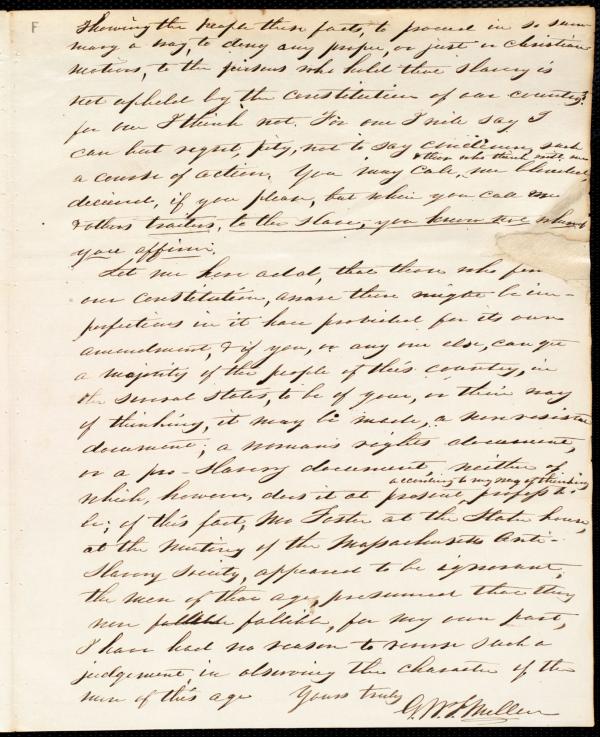 F
showing the people these facts, to proceed in so sum-
mary a way, to deny any proper, or just or Christian
motives, to the persons who hold that slavery is
not upheld by the constitution of our country?
for one I think not. For one I will say I
can but regret, pity, not to say condemn such
& those who think with me
a course of action. You may call, me blinded,
deceived, if you please, but when you call me
& others traitors, to the slave, you know not what
you affirm.
Let me here add, that those who
our constitution, aware there might be im-
perfections in it have provided for its own
amendment, & if you, or any one else, can get
a majority of the people of this country, in
the several states, to be of your, or their way
of thinking, it may be made, a non resistant
document; a woman's rights document,
or a pro-slavery document, neither of
according to my way of thinking
which, however, does it at present, profess to
be; of this fact, Mr Foster at the State house,
at the meeting of the Massachusetts Anti-
Slavery Society, appeared to be ignorant,
the men of that age, presumed that they
were fallible fallible, for my own part,
I have had no reason to reverse such a
judgement, in observing the character of the
men of this age Yours truly
G. W. F. Mellen